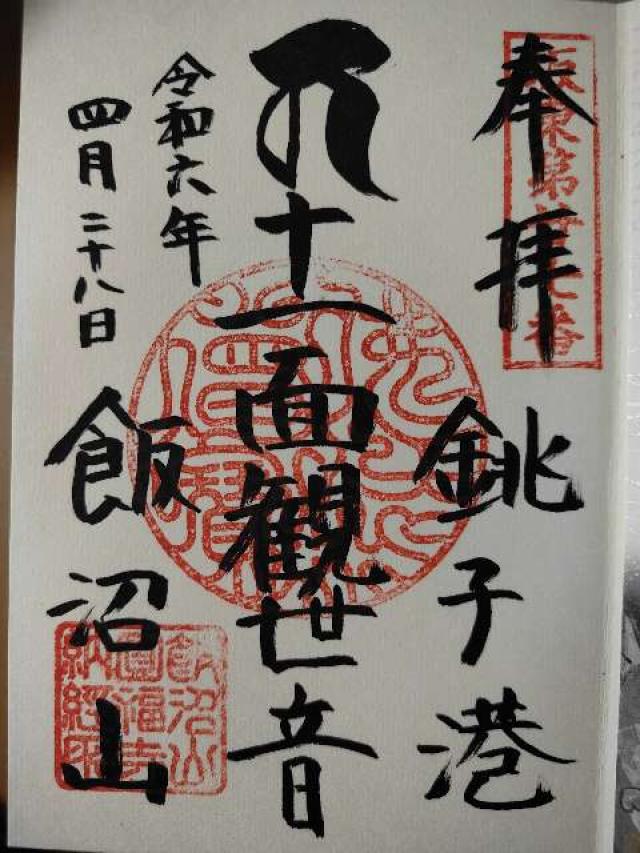 奉拝
坂東第廿七番
銚子港
十一面観世音
令和六年
四月二十八日
飯沼山
飯沼山
圓福寺
納経所